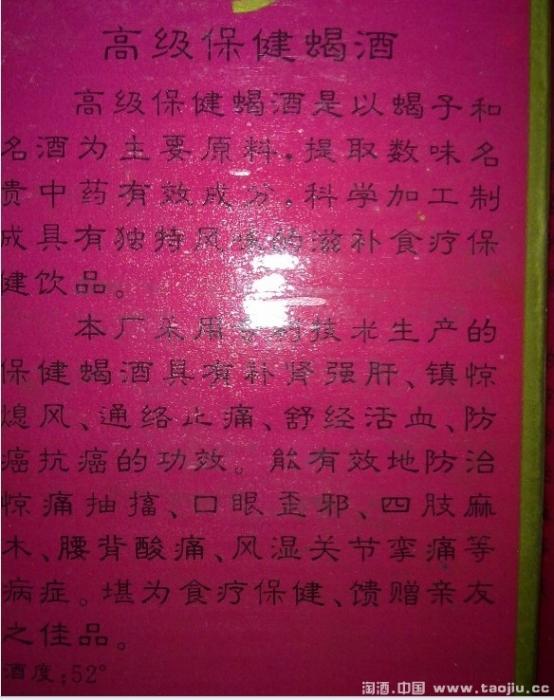 高级保健蝎酒
高级保健蝎酒是以蝎子和
名酒为主要原料，提取数味名
贵中药有效成分，科学加工制
成具有独特风的滋补食疗保
健饮品。
本厂采用技术生产的
保健蝎酒具有补肾强肝、镇惊
熄风、通络止痛、舒经活血、防
癌抗癌的功效。能有效地防治
惊痛抽搐、口眼歪邪、四肢麻
木、腰背酸痛、风湿关节挛痛等
病症。堪为食疗保健、馈赠亲友
之佳品。
酒度：52°
淘酒.中国 www.taojiu.cc